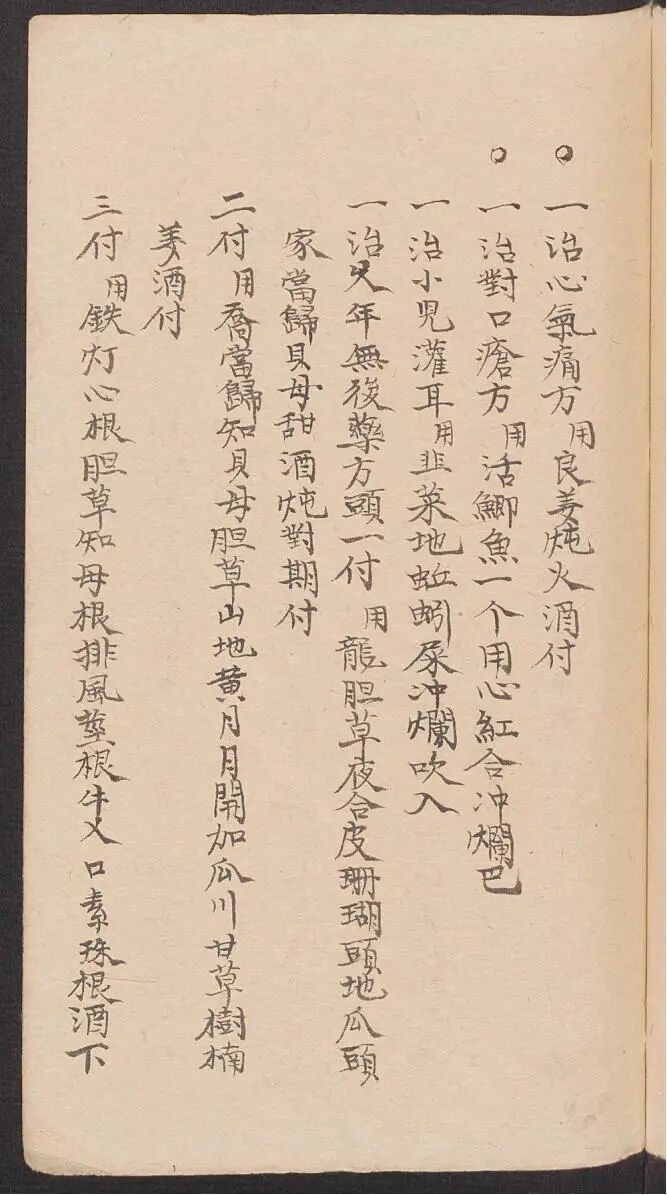 一治心氣痛方用良姜炖火酒付
一治對口瘡方用活鯽魚一个用心紅合冲爛巴
一治小児灌耳用韭菜地蚯蚓屎冲爛吹入
一治久年無後藥方頭一付用龍胆草夜合皮珊瑚頭地瓜頭
家當歸貝母甜酒炖對期付
二付用喬當歸知貝母胆草山地黄月月開加瓜川甘草樹楠
姜酒付
三付用鉄灯心根胆草知母根排風藤根牛乂口素珠根酒下